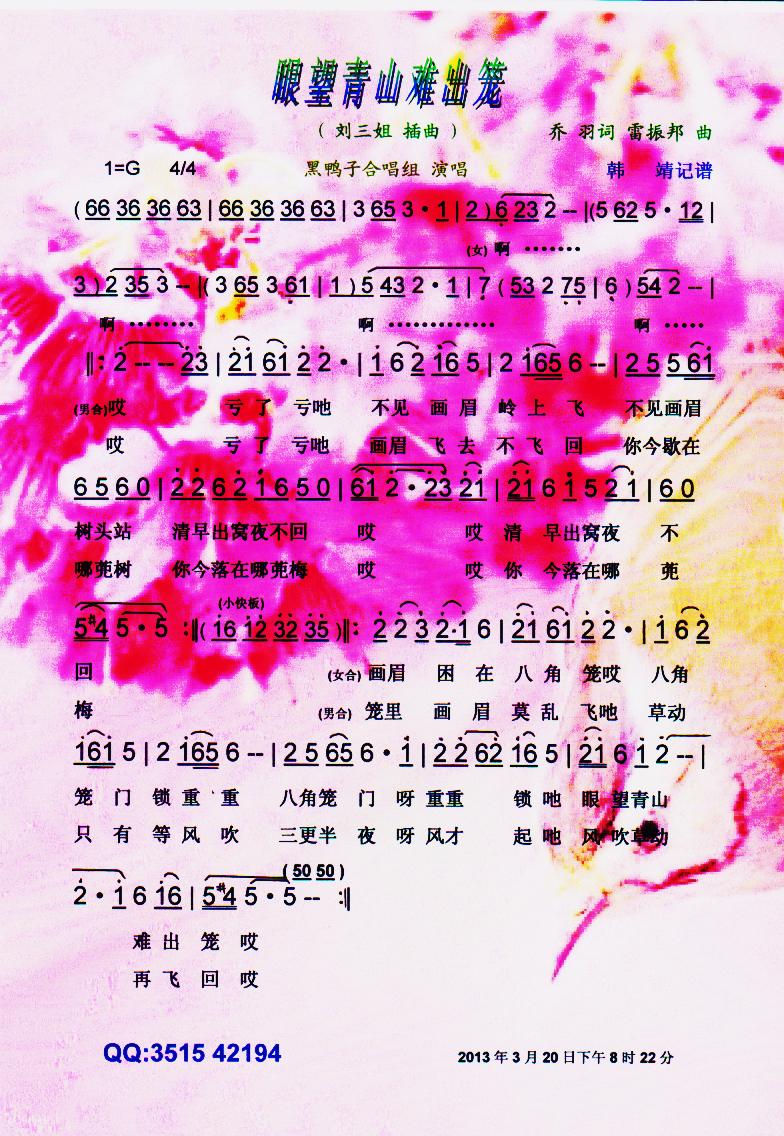 眼望青山难出笼
（ 刘三姐 插曲 ） 乔 羽词 雷振邦 曲
1=G 4/4 黑鸭子合唱组 演唱 韩 靖记谱
( 66 36 36 63 | 66 36 36 63 | 3 65 3 · 1 | 2 ) 6 23 2 -- |(5 62 5 · 12 |
(女) 啊 ·······
3 ) 2 35 3 -- |( 3 65 3 61 | 1 ) 5 43 2 · 1 | 7 ( 53 2 75 | 6 ) 54 2 -- |
啊 ········ 啊 ············· 啊 ·····
‖: 2 -- -- 23 | 21 61 2 2 · | 1 6 2 16 5 | 2 165 6 -- | 2 5 5 61
(男合)哎 亏 了 亏吔 不见 画 眉 岭 上 飞 不见画眉
哎 亏 了 亏吔 画眉 飞 去 不 飞 回 你今歇在
6 5 6 0 | 2 2 6 2 1 6 5 0 | 61 2 · 23 21 | 21 6 1 5 2 1 | 6 0
树头站 清早出窝夜不回 哎 哎 清 早出窝夜 不
哪蔸树 你今落在哪蔸梅 哎 哎 你 今落在哪 蔸
(小快板)
5#4 5 · 5 :‖( 16 12 32 35 )‖: 2 2 3 2·1 6 | 21 61 2 2 · | 1 6 2
回 (女合) 画眉 困 在 八 角 笼哎 八角
梅 (男合) 笼里 画 眉 莫 乱 飞吔 草动
161 5 | 2 165 6 -- | 2 5 65 6 · 1 | 2 2 62 16 5 | 21 6 1 2 -- |
笼 门 锁 重 重 八角笼 门 呀 重重 锁 吔 眼 望青山
只 有 等 风 吹 三更半 夜 呀 风才 起 吔 风 吹草动
( 50 50 )
2 · 1 6 16 | 5#4 5 · 5 -- :‖
难 出 笼 哎
再 飞 回 哎
QQ:3515 42194 2013 年 3 月 20 日下午 8 时 22 分